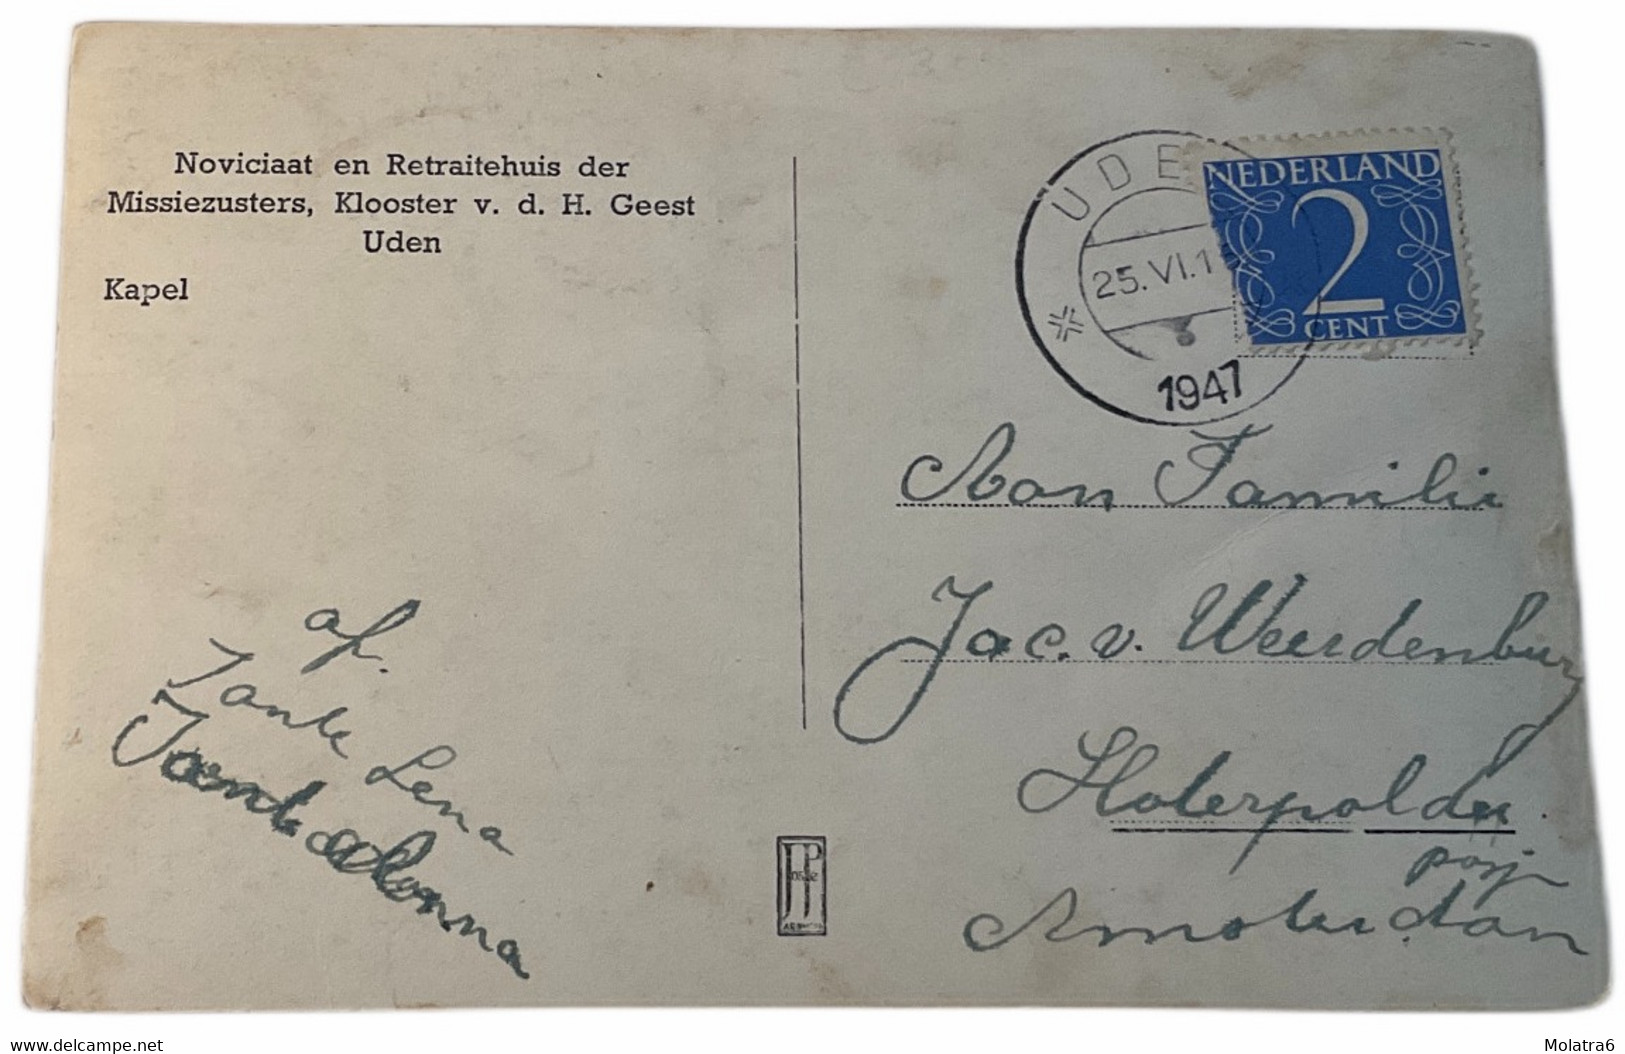 Noviciaat en Retraitehuis der
Missiezusters, Klooster v. d. H. Geest
Uden
Kapel
UDE
25.VI.1
1947
NEDERLAND
2
CENT
Aan Familie
Jac. v. Weerdenburg
Sloterpolder
Amsterdam
af.
Tante Lena
Tante
JP
www.delcampe.net
Molatra6